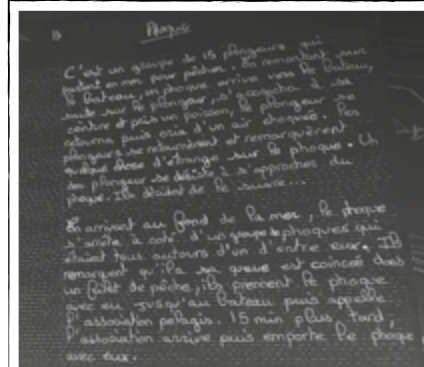 Phoque
C'est un groupe de 15 plongeurs qui
partent en mer pour pêcher. En remontant sur
le bateau, un phoque arrive vers le bateau,
saute sur le plongeur, s'accrocha à sa
ceinture et prit un poisson, le plongeur se
retourna puis cria d'un air choquée. Les
plongeurs se retournèrent et remarquèrent
quelque chose d'étrange sur le phoque. Un
des plongeur se décide à s'approcher du
phoque. Ils décident de le suivre...
En arrivant au fond de la mer, le phoque
s'arrêta à coté d'un groupe de phoques qui
étaient tous autours d'un d'entre eux. Ils
remarquent qu'ila sa queue est coincée dans
un filet de pêche, ils prennent le phoque
avec eu jusqu'au bateau puis appelle
l'association pelagis. 15 min plus tard,
l'association arrive puis emporte le phoque
avec eux.